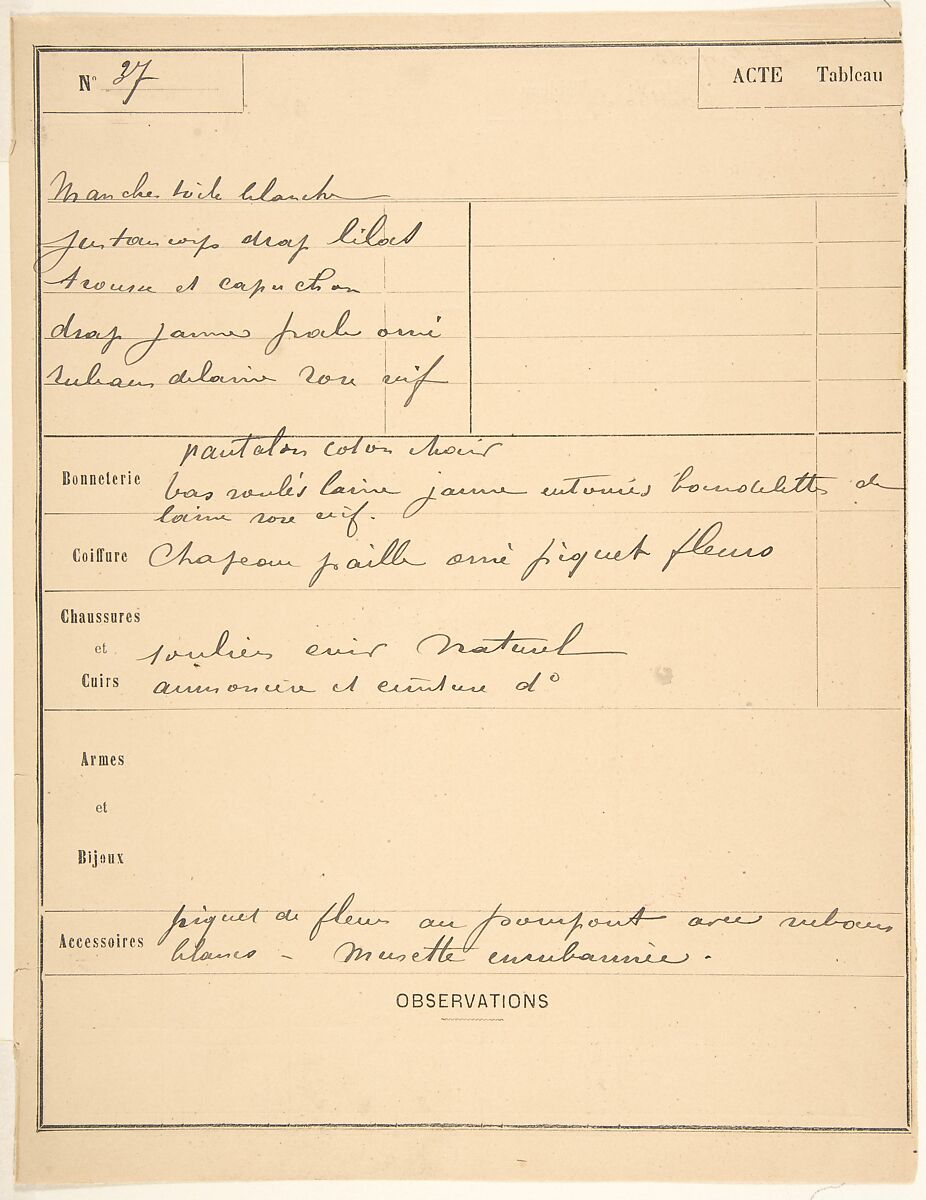 N° 37
ACTE Tableau
Manches toile blanche
justaucorps drap lilas
trousse et capuchon
drap jaune pale orné
rubans de laine rose vif
pantalon coton chair
Bonneterie bas roulés laine jaune entourés bandelettes de
laine rose vif.
Coiffure Chapeau paille orné piquet fleurs
Chaussures
et souliers cuir Naturel
Cuirs aumoniere et ceinture d°
Armes
et
Bijoux
piquet de fleurs au avec rubans
Accessoires blancs - Musette enrubannée.
OBSERVATIONS